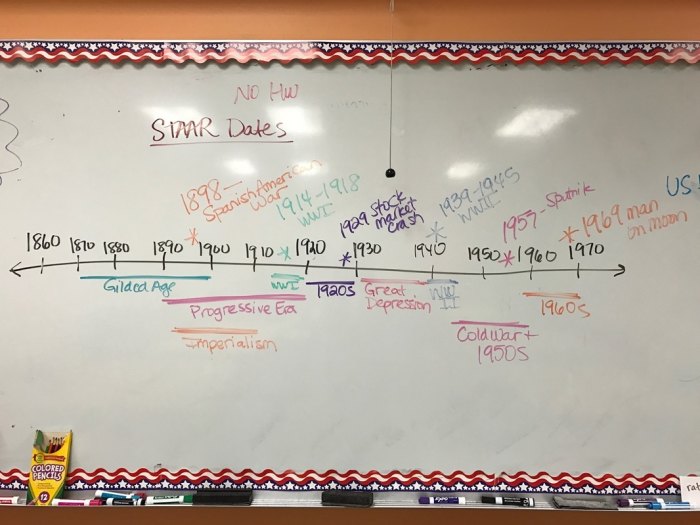 NO HW
STAAR Dates
1898 -
Spanish American
War
1914-1918
WWI
1929 Stock
market
crash
1939-1945
WWII
1957 - Sputnik
1969 man
on moon
US
1860 1870 1880 1890 1900 1910 1920 1930 1940 1950 1960 1970
Gilded Age
WWI
1920s
Great
Depression
WW
II
1960s
Progressive Era
Imperialism
Cold War +
1950s
COLORED
PENCILS
12
EXPO
rat